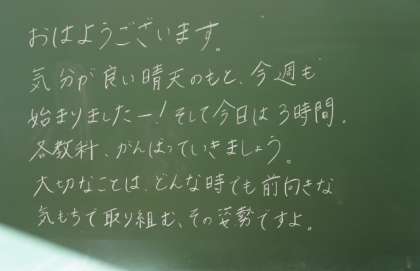 おはようございます。
気分が良い晴天のもと、今週も
始まりましたー！そして今日は3時間、
各教科、がんばっていきましょう。
大切なことは、どんな時でも前向きな
気もちで取り組む、その姿勢ですよ。